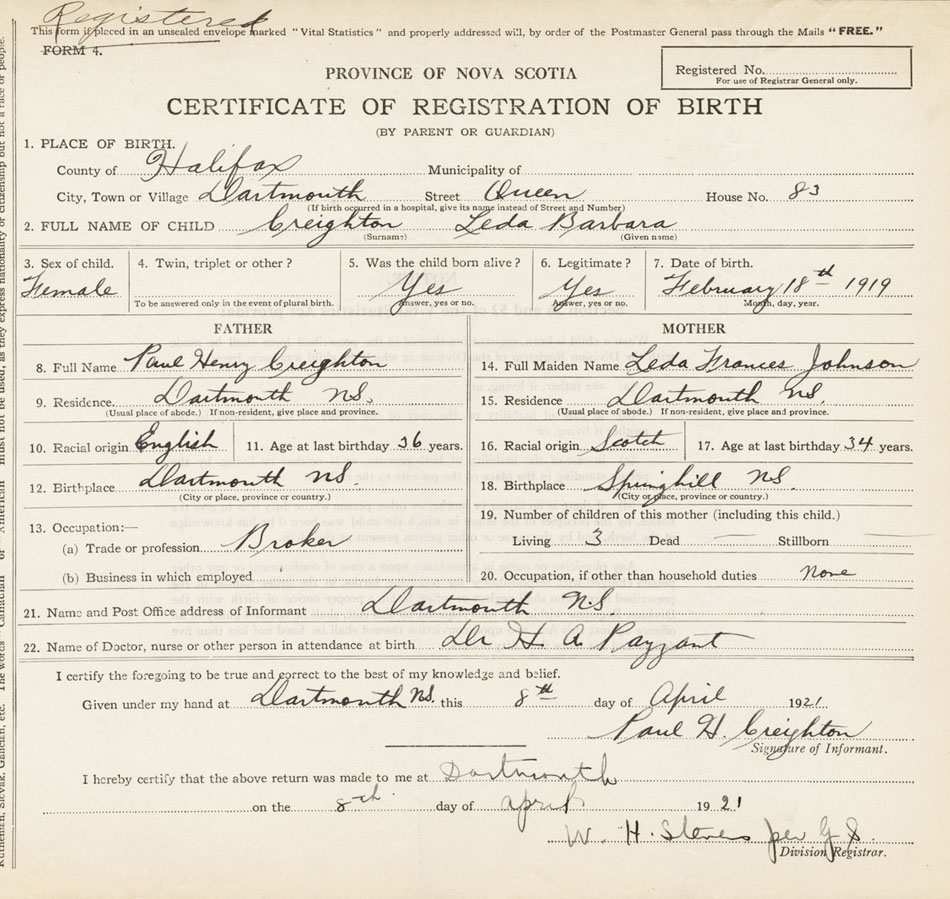 Registered
This form if placed in an unsealed envelope marked "Vital Statistics" and properly addressed will, by order of the Postmaster General pass through the Mails "FREE."
FORM 4.
PROVINCE OF NOVA SCOTIA
Registered No.
For use of Registrar General only.
CERTIFICATE OF REGISTRATION OF BIRTH
(BY PARENT OR GUARDIAN)
1. PLACE OF BIRTH.
County of Halifax Municipality of
City, Town or Village Dartmouth Street Queen House No. 83
(If birth occurred in a hospital, give its name instead of Street and Number)
2. FULL NAME OF CHILD Creighton Leda Barbara
(Surname) (Given name)
3. Sex of child. Female
4. Twin, triplet or other?
To be answered only in the event of plural birth.
5. Was the child born alive? Yes
Answer, yes or no.
6. Legitimate? Yes
Answer, yes or no.
7. Date of birth. February 18th 1919
Month, day, year.
FATHER
8. Full Name Paul Henry Creighton
9. Residence. Dartmouth NS.
(Usual place of abode.) If non-resident, give place and province.
10. Racial origin English 11. Age at last birthday 36 years.
12. Birthplace Dartmouth NS.
(City or place, province or country.)
13. Occupation:—
(a) Trade or profession Broker
(b) Business in which employed
MOTHER
14. Full Maiden Name Leda Frances Johnson
15. Residence Dartmouth NS.
(Usual place of abode.) If non-resident, give place and province.
16. Racial origin Scotch 17. Age at last birthday 34 years.
18. Birthplace Springhill NS.
(City or place, province or country.)
19. Number of children of this mother (including this child.)
Living 3 Dead — Stillborn —
20. Occupation, if other than household duties none
21. Name and Post Office address of Informant Dartmouth NS.
22. Name of Doctor, nurse or other person in attendance at birth Dr H. A. Payzant
I certify the foregoing to be true and correct to the best of my knowledge and belief.
Given under my hand at Dartmouth NS. this 8th day of April 1921
Paul H. Creighton
Signature of Informant.
I hereby certify that the above return was made to me at Dartmouth
on the 8th day of April 1921
W. H. Stevens per G S.
Division Registrar.
must not be used, as they express nationality or citizenship but not a race or people.
Ruthenian, Slovak, Galician, etc. The words "Canadian" or "American"